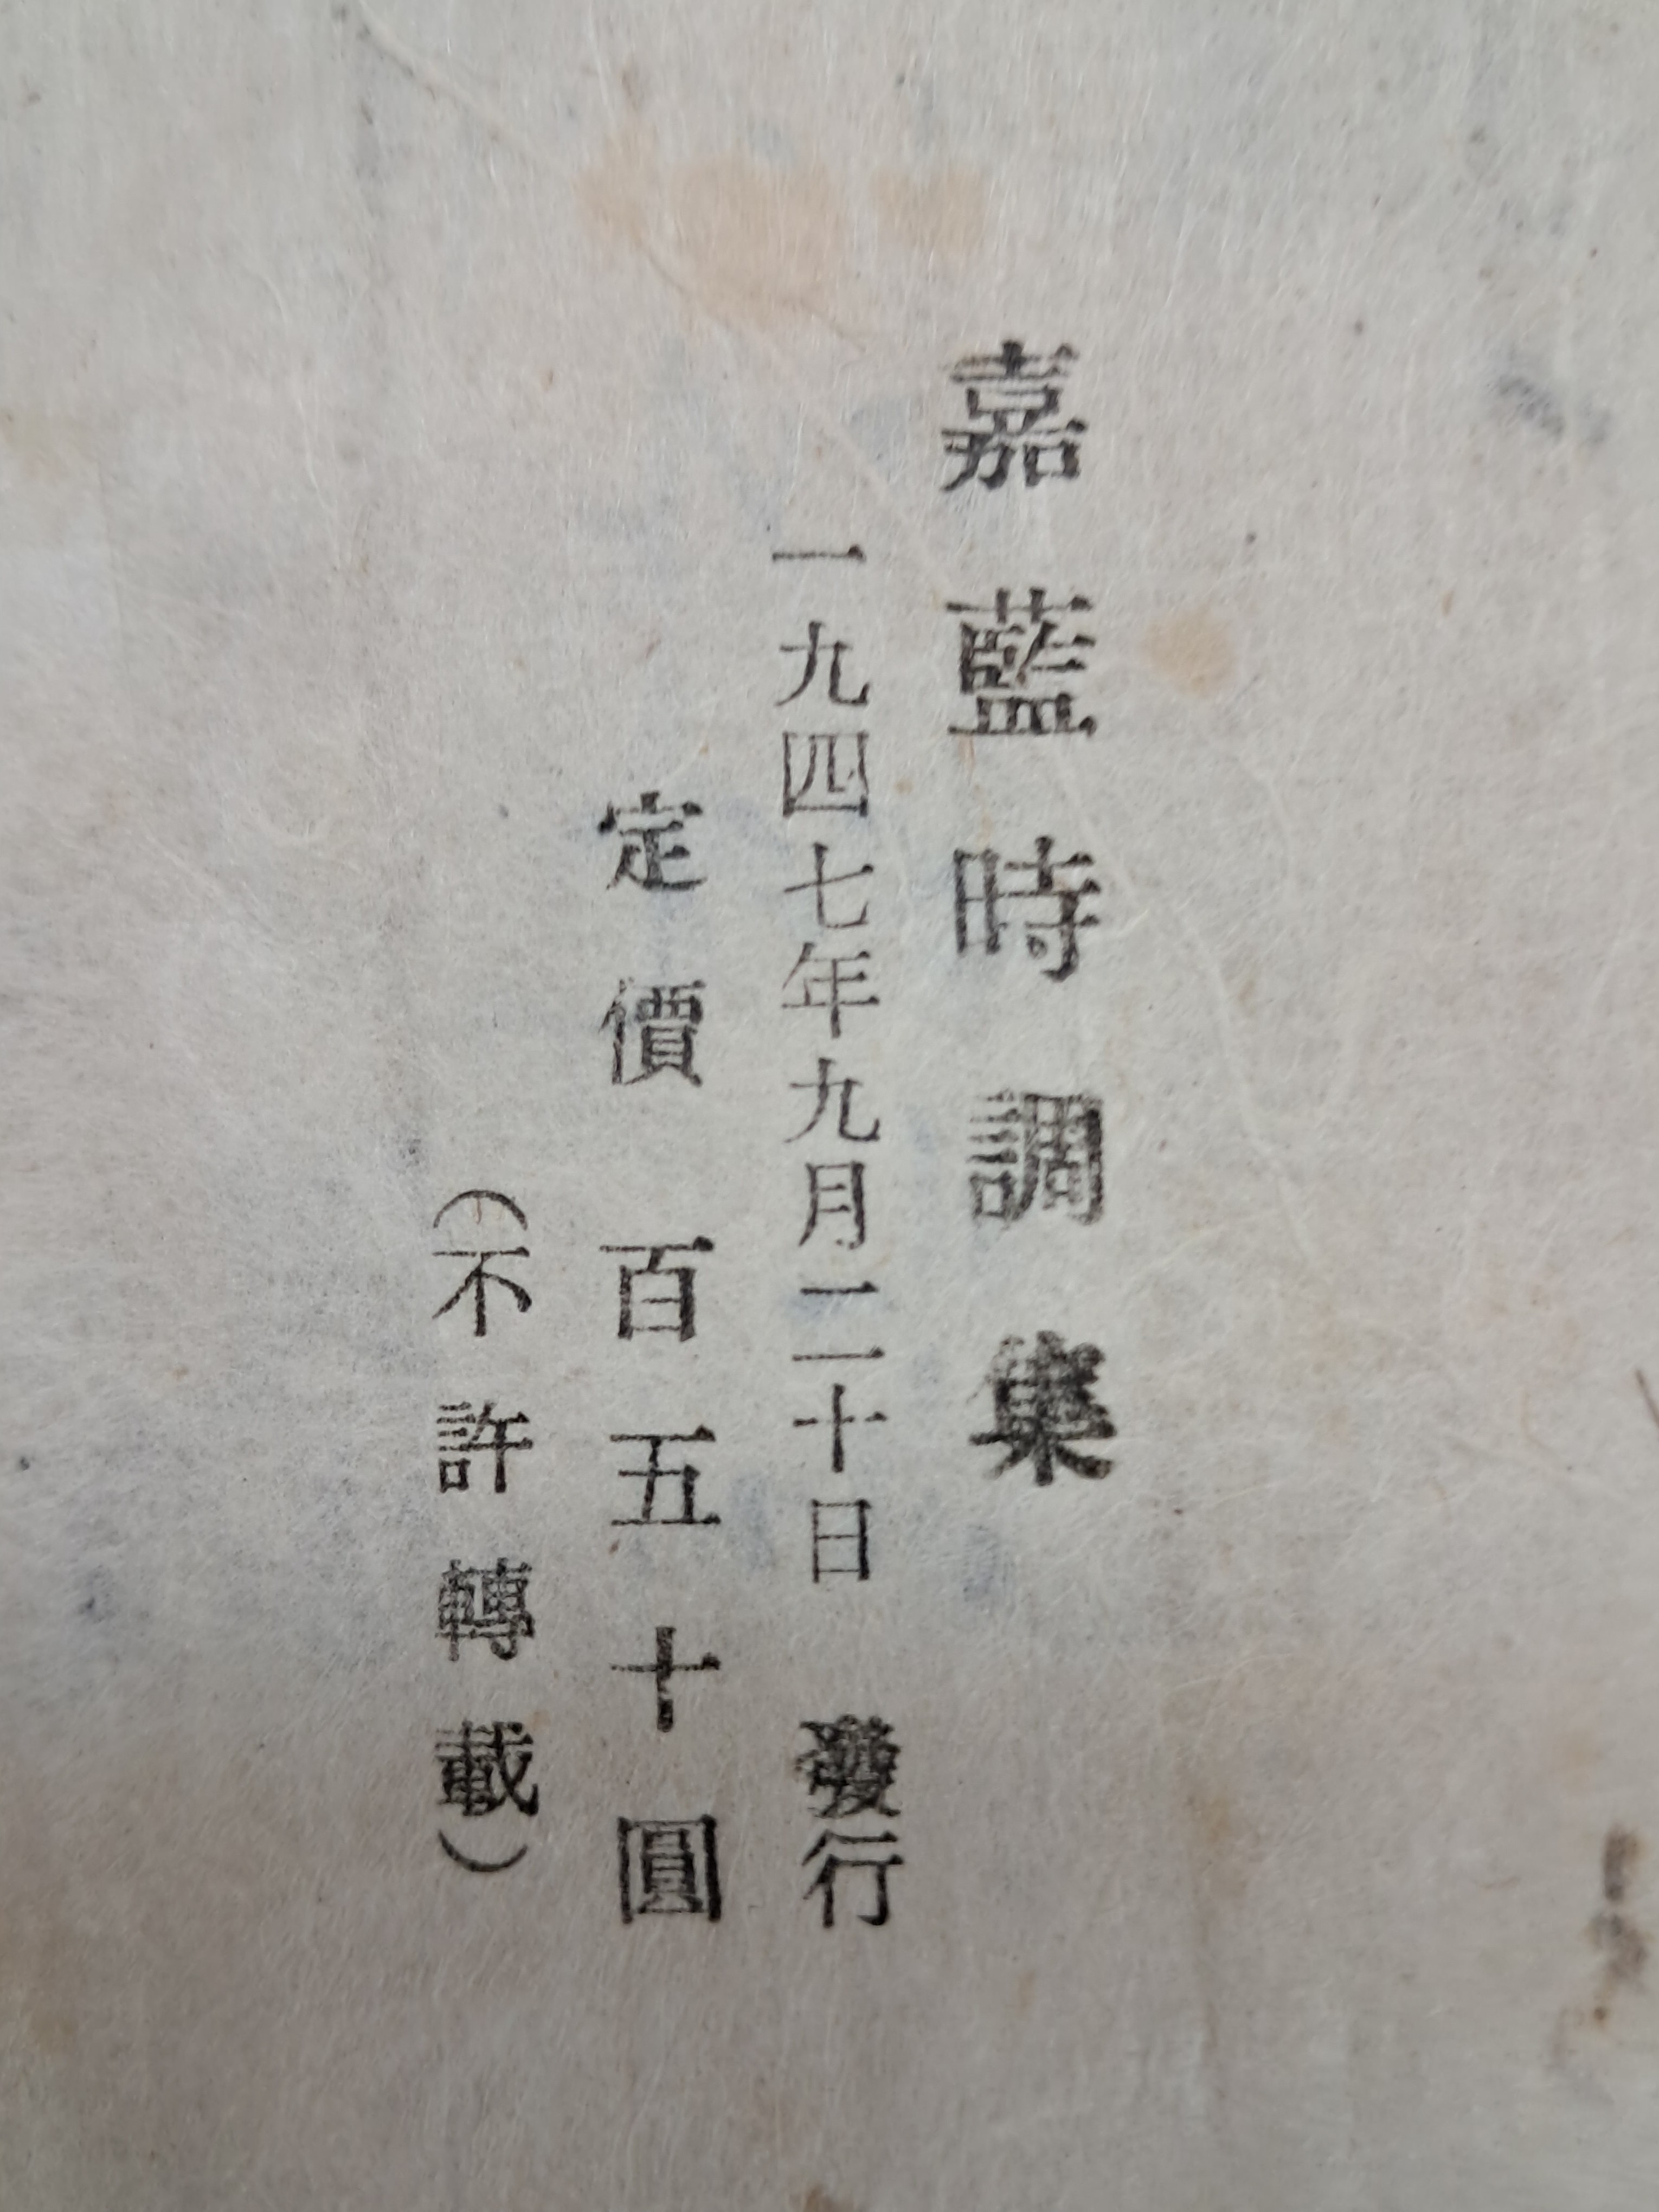 嘉藍時調集
一九四七年九月二十日 發行
定價 百五十圓
(不許轉載)